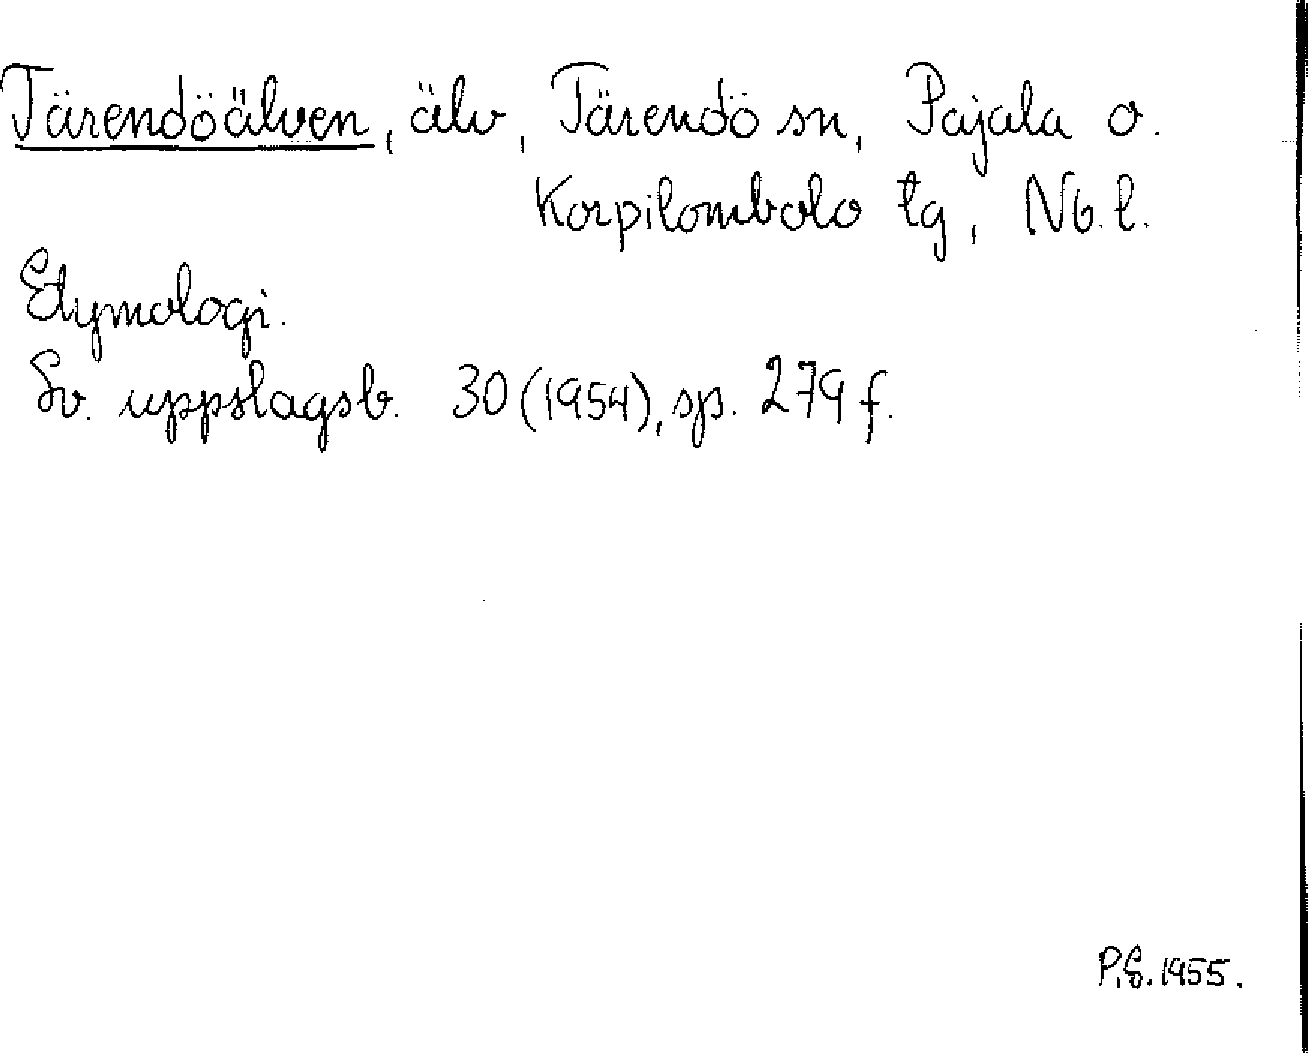 Tärendöälven, älv, Tärendö sn, Pajala o.
Korpilombolo tg, Nb. l.
Etymologi.
Sv. uppslagsb. 30 (1954), sp. 279 f.
P.S. 1955.